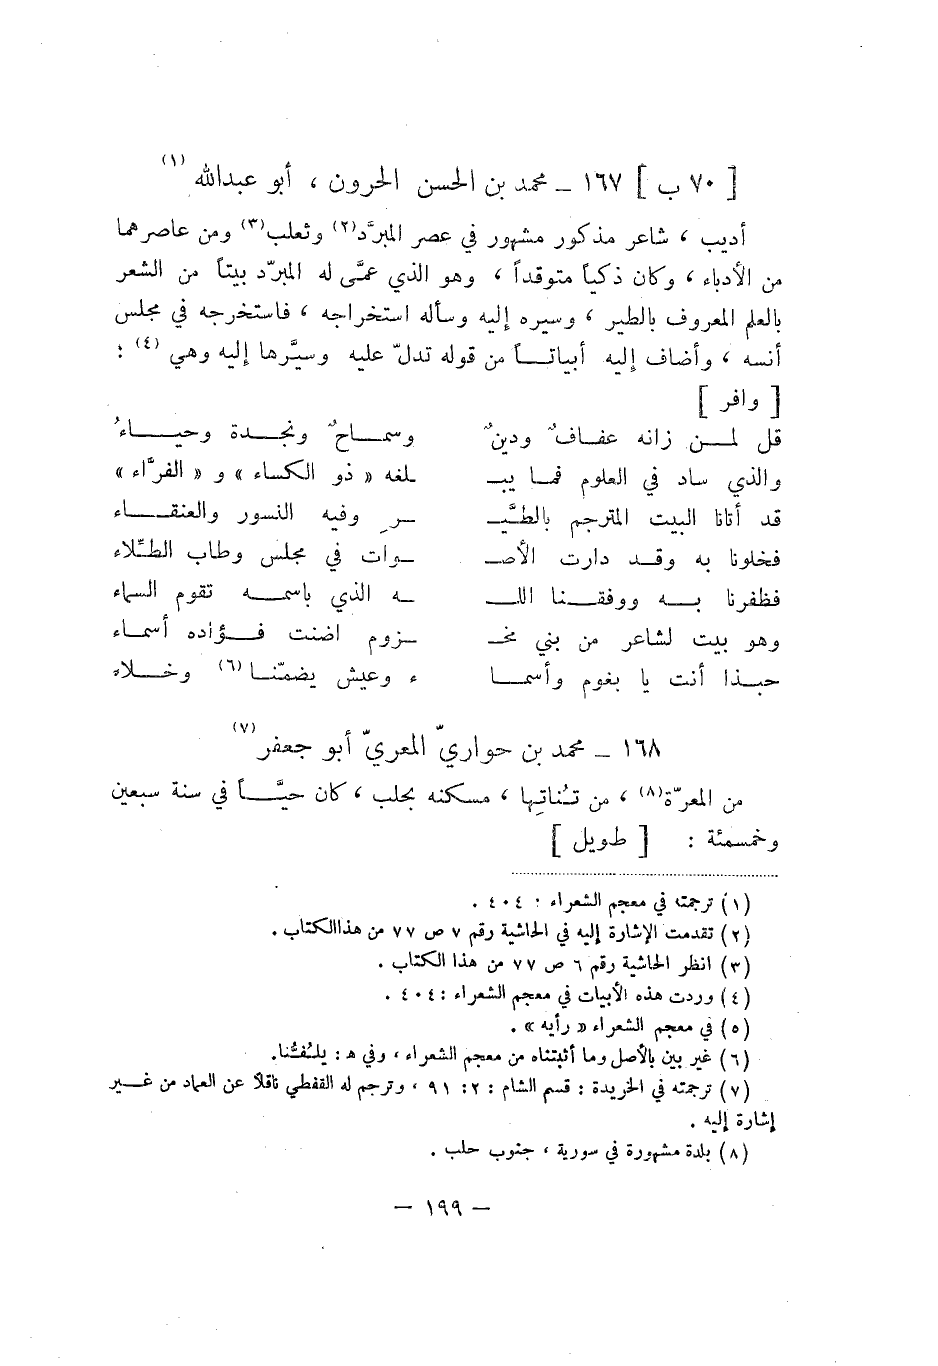 [ ٧٠ ب ] ١٦٧ ــ محمد بن الحسن الحرون ، أبو عبدالله (١)
أديب ، شاعر مذكور مشهور في عصر المبرَّد(٢) وثعلب(٣) ومن عاصرهما
من الأدباء ، وكان ذكياً متوقداً ، وهو الذي عمَّى له المبرّد بيتاً من الشعر
بالعلم المعروف بالطير ، وسيره إليه وسأله استخراجه ، فاستخرجه في مجلس
أنسه ، وأضاف إليه أبياتاً من قوله تدلّ عليه وسيَّرها إليه وهي (٤) :
[ وافر ]
قل لمن زانه عفافٌ ودينٌ وسماحٌ ونجدة وحياءُ
والذي ساد في العلوم فما يبـ ـلغه « ذو الكساء » و « الفرَّاء »
قد أتانا البيت المترجم بالطَّيـ ـرِ وفيه النسور والعنقاء
فخلونا به وقد دارت الأصـ ـوات في مجلس وطاب الطِّلاء
فظفرنا به ووفقنا اللـ ـه الذي باسمه تقوم السماء
وهو بيت لشاعر من بني مخـ ـزوم اضنت فؤاده أسماء
حبذا أنت يا بغوم وأسما ء وعيش يضمّنا (٦) وخلاء
١٦٨ ــ محمد بن حواريّ المعريّ أبو جعفر(٧)
من المعرّة(٨) ، من تُنائِها ، مسكنه بحلب ، كان حيَّاً في سنة سبعين
وخمسمئة : [ طويل ]
(١) ترجمته في معجم الشعراء : ٤٠٤ .
(٢) تقدمت الإشارة إليه في الحاشية رقم ٧ ص ٧٧ من هذاالكتاب .
(٣) انظر الحاشية رقم ٦ ص ٧٧ من هذا الكتاب .
(٤) وردت هذه الأبيات في معجم الشعراء : ٤٠٤ .
(٥) في معجم الشعراء « رأيه » .
(٦) غير بين بالأصل وما أثبتناه من معجم الشعراء ، وفي هـ : يلتُفُّنا.
(٧) ترجمته في الخريدة : قسم الشام : ٢: ٩١ ، وترجم له القفطي ناقلاً عن العماد من غير
إشارة إليه .
(٨) بلدة مشهورة في سورية ، جنوب حلب .
— ١٩٩ —